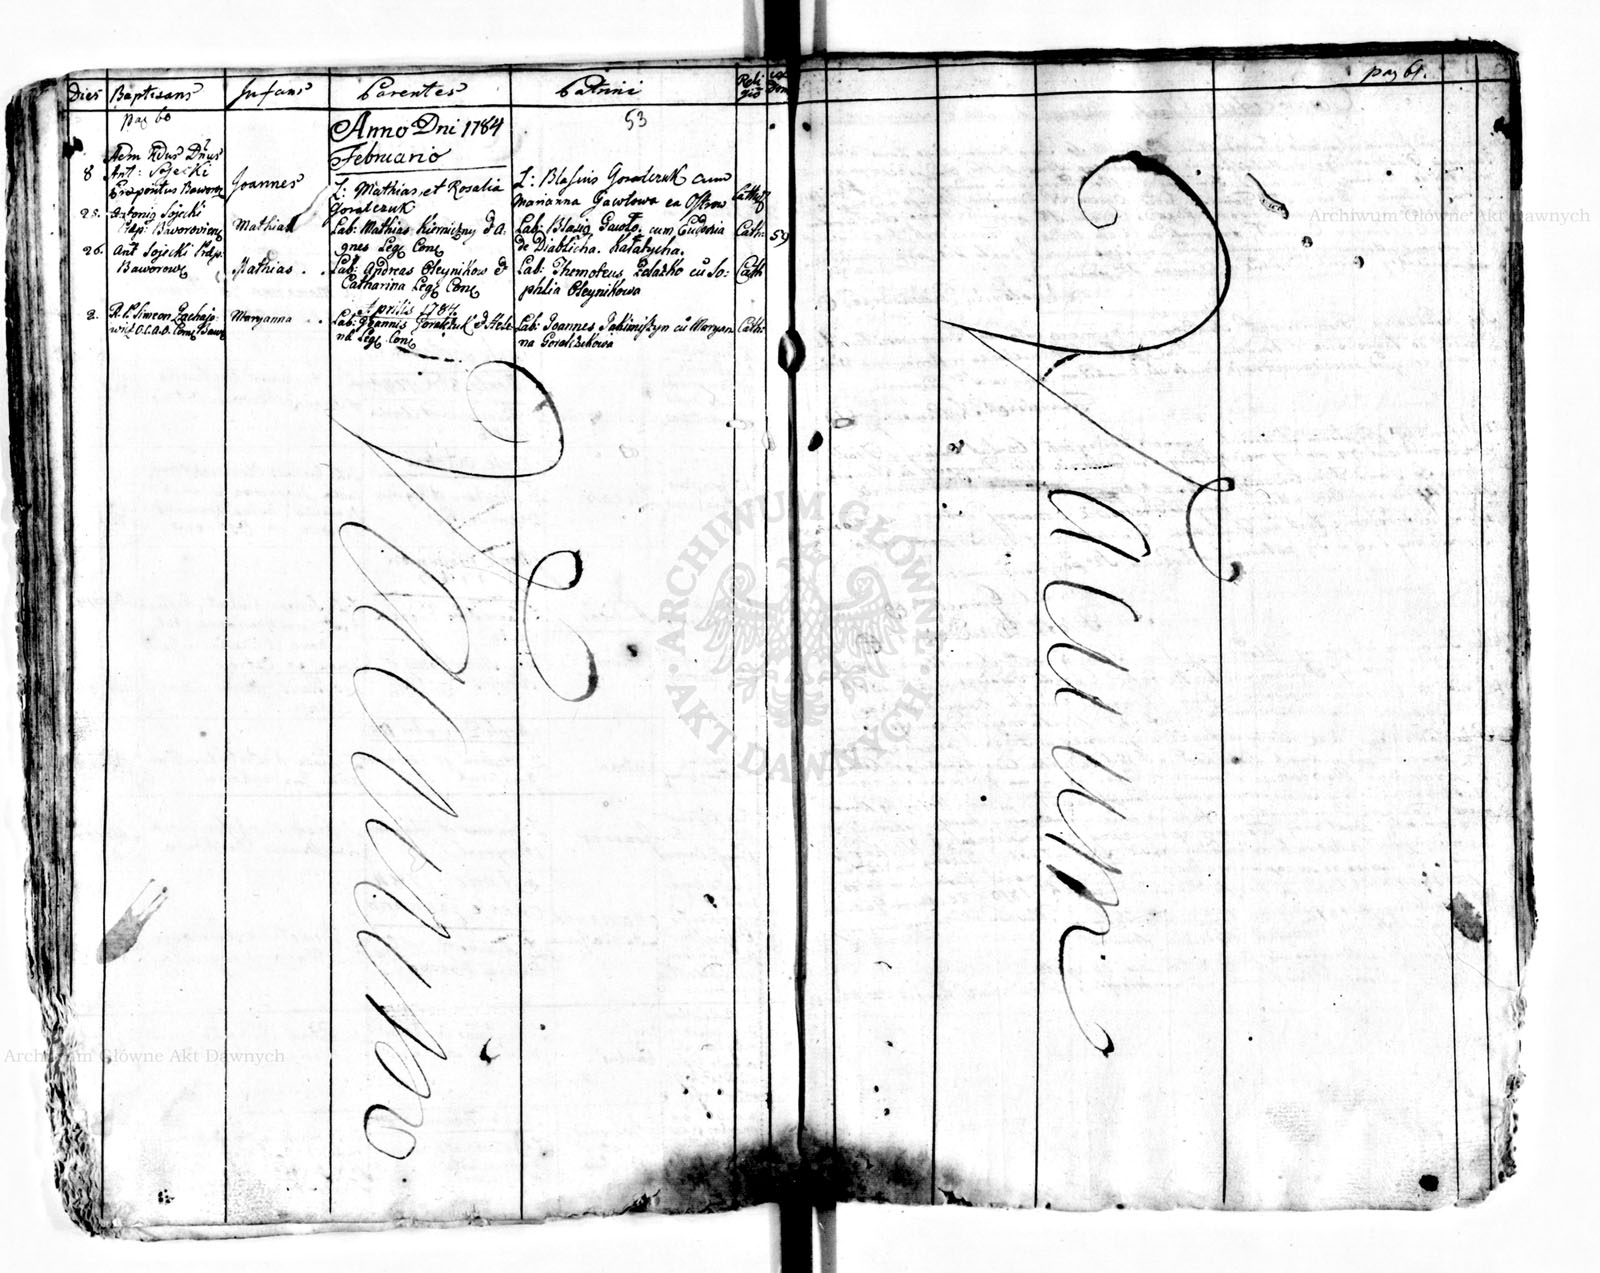 Dies Baptisans Infans Parentes Patrini Religio
pag 60
53
Anno Dni 1784
Februario
8 Adm Rdus Dnus Ant: Sojecki Praepositus Baworov
Joannes
L: Mathias et Rosalia
Goralczuk
L: Blasius Goralczuk cum
Marianna Gawlowa ea Ostrow
Cath
25. Antonio Sojecki
Pdp: Baworoviens
Mathias
Lab: Mathias Kierniczny et A-
gnes Leg: Con:
Lab: Blasio Gawlo, cum Eudoxia
de Diablicha. Kałatycha.
Cath: 59
26. Ant Sojecki Pdp.
Baworow
Mathias . .
Lab: Andreas Oleynikow et
Catharina Leg: Con:
Lab: Themoteus Zelazko cu So-
phia Oleynikowa
Cath
Aprilis 1784.
2. R. P. Simeon Zachaja-
Maryanna . .
Lab: Joannis Goralczuk et Hele-
na Leg: Con:
Lab: Joannes Jakimiszyn cu Maryan
na Goralczukowa
Cath:
Vacuum
pag 61.
Vacuum
Archiwum Główne Akt Dawnych
Archiwum Główne Akt Dawnych
ARCHIWUM GŁÓWNE AKT DAWNYCH